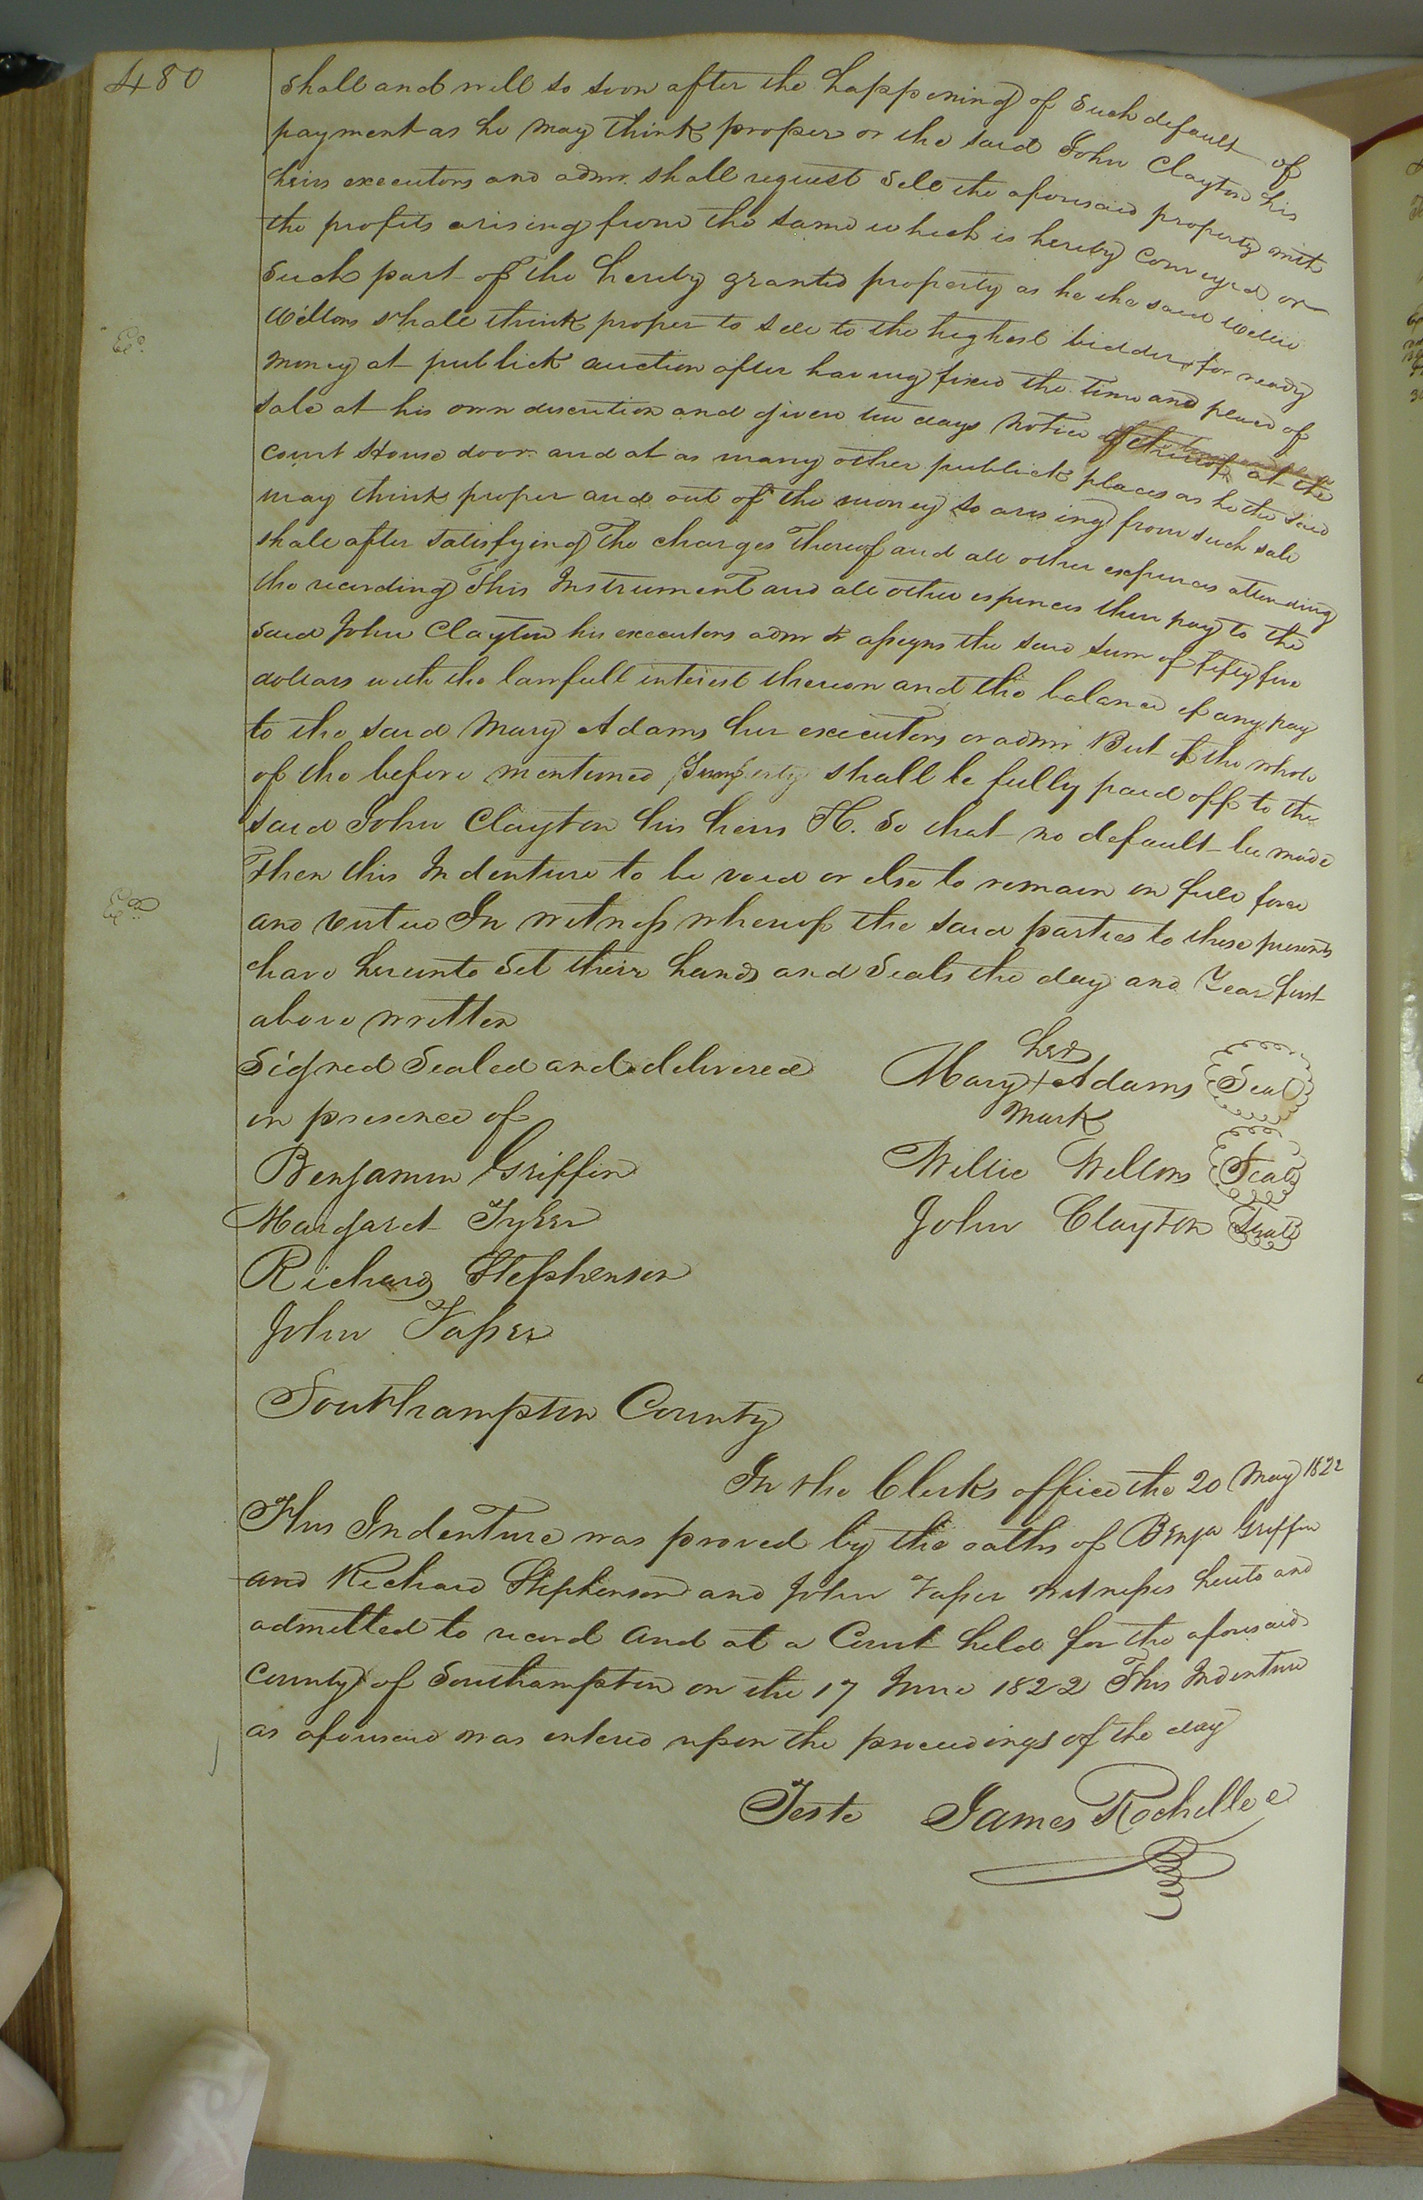 480
shall and will so soon after the happening of Such default of
payment as he may think proper or the said John Clayton his
heirs executors and admr. shall request Sell the aforesaid property with
the profits arising from the same which is hereby conveyed or
Such part of the hereby granted property as he the said Willie
Wellons shall think proper to sell to the highest bidder for ready
money at publick auction after having fixed the time and place of
sale at his own discretion and given ten days Notice thereof at the
court House door and at as many other publick places as he the said
may think proper and out of the money so arising from such sale
shall after satisfying The charges Thereof and all other expences attending
the recording This Instrument and all other expences then pay to the
said John Clayton his executors admr & assigns the said sum of fifty five
dollars with the lawfull interest thereon and the balance if any pay
to the said Mary Adams her executors or admr But if the whole
of the before mentioned shall be fully paid off to the
said John Clayton his heirs &C. So that no default be made
Then this Indenture to be void or else to remain in full force
and virtue In witness whereof the said parties to these presents
have hereunto Set their hands and Seals the day and Year first
above written
Signed Sealed and delivered
in presence of
her
Mary + Adams Seal
mark
Benjamin Griffin
Willie Wellons Seal
Margaret Tyler
John Clayton Seal
Richard Stephenson
John Vaser
Southampton County
In the Clerks office the 20 May 1822
This Indenture was proved by the oaths of Benja Griffin
and Richard Stephenson and John Vaser witnesses hereto and
admitted to record And at a Court held for the aforesaid
County of Southampton on the 17 June 1822 This Indenture
as aforesaid was entered upon the proceedings of the day
Teste James Rochelle c